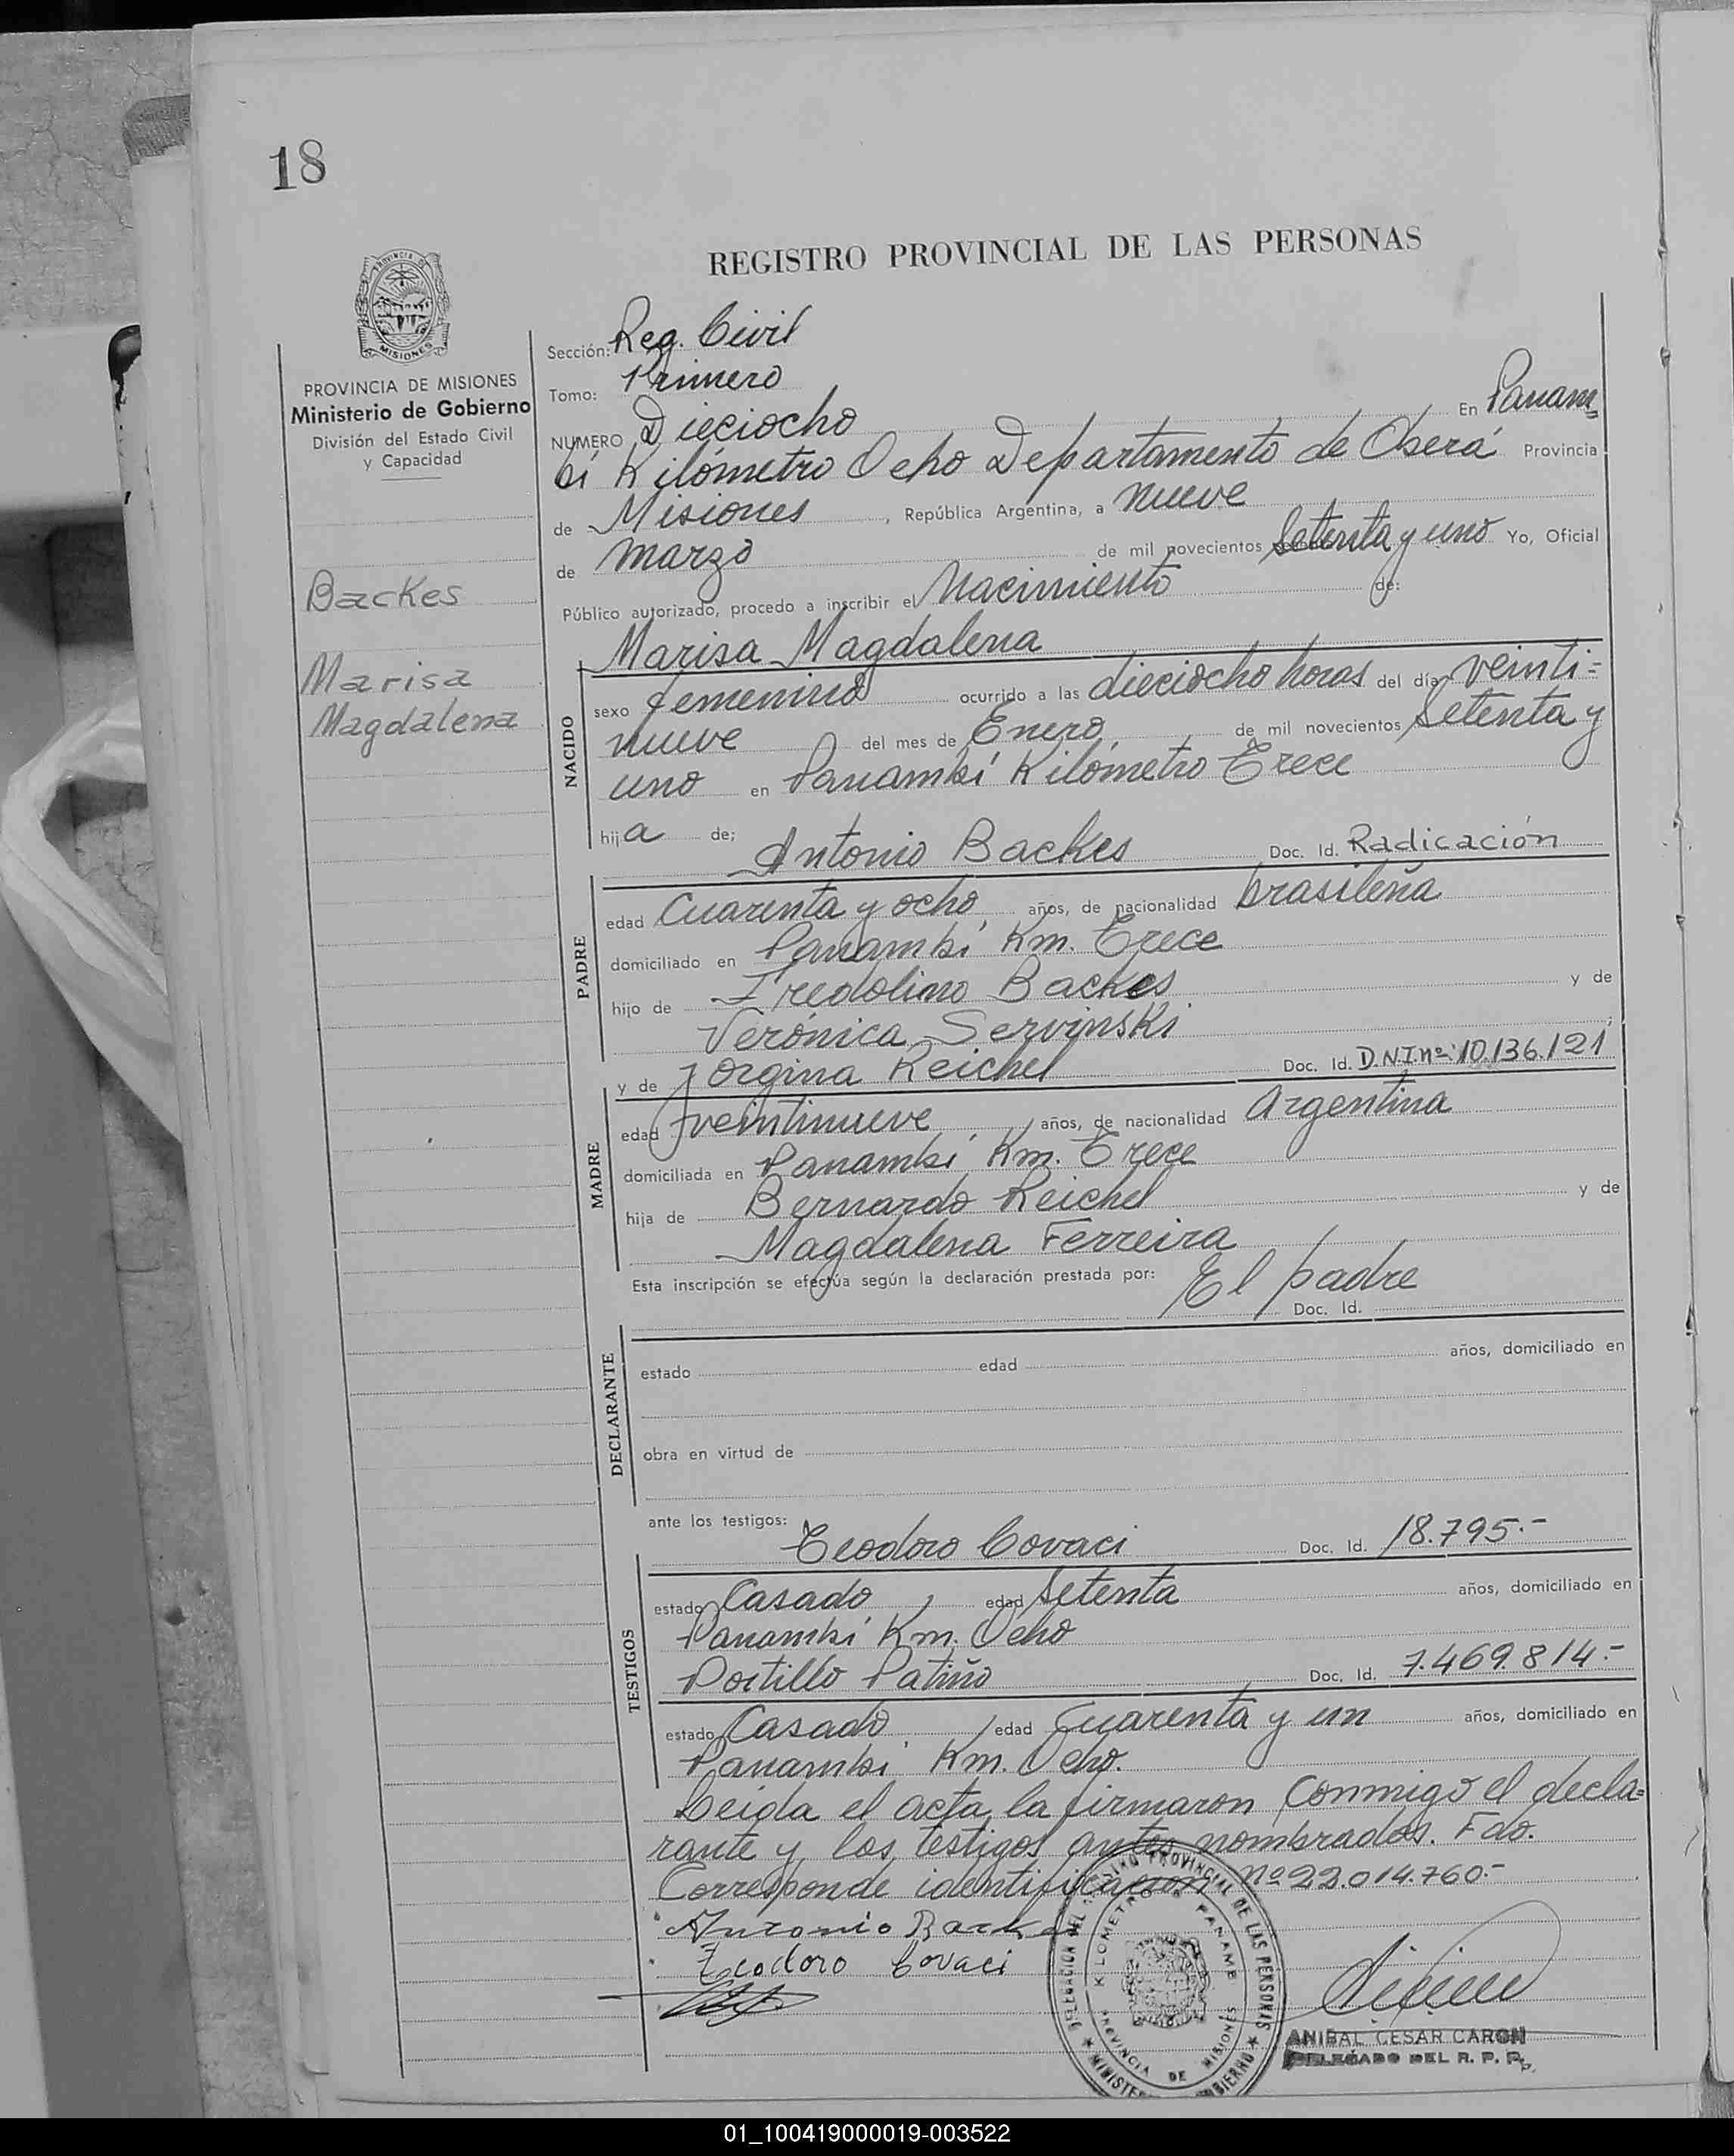 18
REGISTRO PROVINCIAL DE LAS PERSONAS
PROVINCIA DE MISIONES
Ministerio de Gobierno
División del Estado Civil
y Capacidad
Backes
Marisa
Magdalena
Sección: Reg. Civil
Tomo: Primero
NUMERO Dieciocho En Panam=
bí Kilómetro Ocho Departamento de Oberá Provincia
de Misiones, República Argentina, a nueve
de marzo de mil novecientos setenta y uno Yo, Oficial
Público autorizado, procedo a inscribir el Nacimiento de:
Marisa Magdalena
NACIDO
sexo femenino ocurrido a las dieciocho horas del día veinti=
nueve del mes de Enero, de mil novecientos setenta y
uno en Panambí Kilómetro Trece
hija de;
Antonio Backes Doc. Id. Radicación
PADRE
edad Cuarenta y ocho años, de nacionalidad brasileña
domiciliado en Panambí Km. Trece
hijo de Fredolino Backes y de
Verónica Servinski
y de Jorgina Reichel Doc. Id. D.N.I. nº 10.136.121
MADRE
edad veintinueve, años, de nacionalidad Argentina
domiciliada en Panambí Km. Trece
hija de Bernardo Reichel y de
Magdalena Ferreira
Esta inscripción se efectúa según la declaración prestada por: El padre
Doc. Id.
DECLARANTE
estado edad años, domiciliado en
obra en virtud de
ante los testigos:
Teodoro Covaci Doc. Id. 18.795.-
TESTIGOS
estado Casado, edad Setenta años, domiciliado en
Panambí Km. Ocho
Portillo Patiño Doc. Id. 7.469.814.-
estado Casado, edad Cuarenta y un años, domiciliado en
Panambí Km. Ocho.
Leida el acta, la firmaron conmigo el decla=
rante y los testigos antes nombrados. Fdo.
Corresponde identificación nº 22.014.760.-
Antonio Backes
Teodoro Covaci
DELEGACION DEL REGISTRO PROVINCIAL DE LAS PERSONAS
KILOMETRO 8 PANAMBI
PROVINCIA DE MISIONES
MINISTERIO DE GOBIERNO
ANIBAL CESAR CARON
DELEGADO DEL R. P. P.
01_100419000019-003522